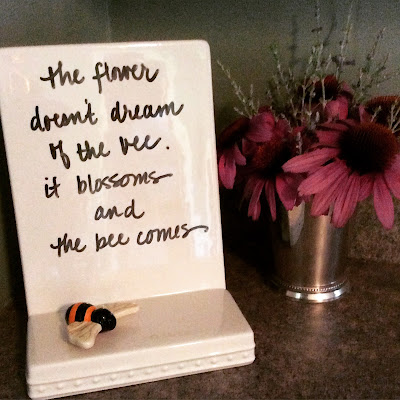 the flower
doesn't dream
of the bee.
it blossoms
and
the bee comes